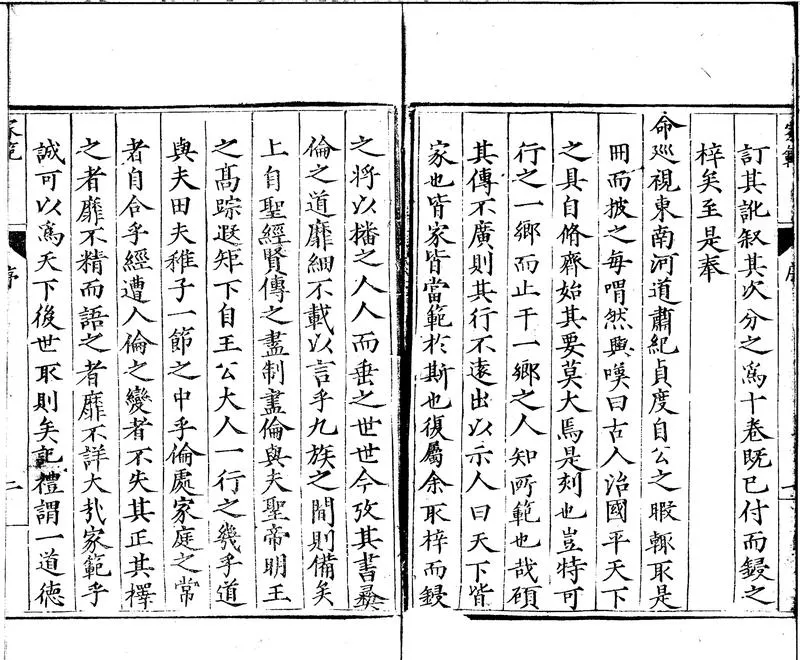 訂其訛叙其次分之爲十卷既已付而鋟之
梓矣至是奉
命巡視東南河道肅紀貞度自公之暇輙取是
冊而披之每喟然興嘆曰古人治國平天下
之具自脩齊始其要莫大焉是刻也豈特可
行之一鄉而止于一鄉之人知所範也哉碩
其傳不廣則其行不遠出以示人曰天下皆
家也皆家皆當範於斯也復屬余取梓而鋟
之將以播之人人而垂之世世今攷其書彛
倫之道靡細不載以言乎九族之間則備矣
上自聖經賢傳之盡制盡倫與夫聖帝明王
之髙踪遐矩下自王公大人一行之幾乎道
與夫田夫稚子一節之中乎倫處家庭之常
者自合乎經遭人倫之變者不失其正其擇
之者靡不精而語之者靡不詳大哉家範乎
誠可以爲天下後世取則矣記禮謂一道德
家範
序
二